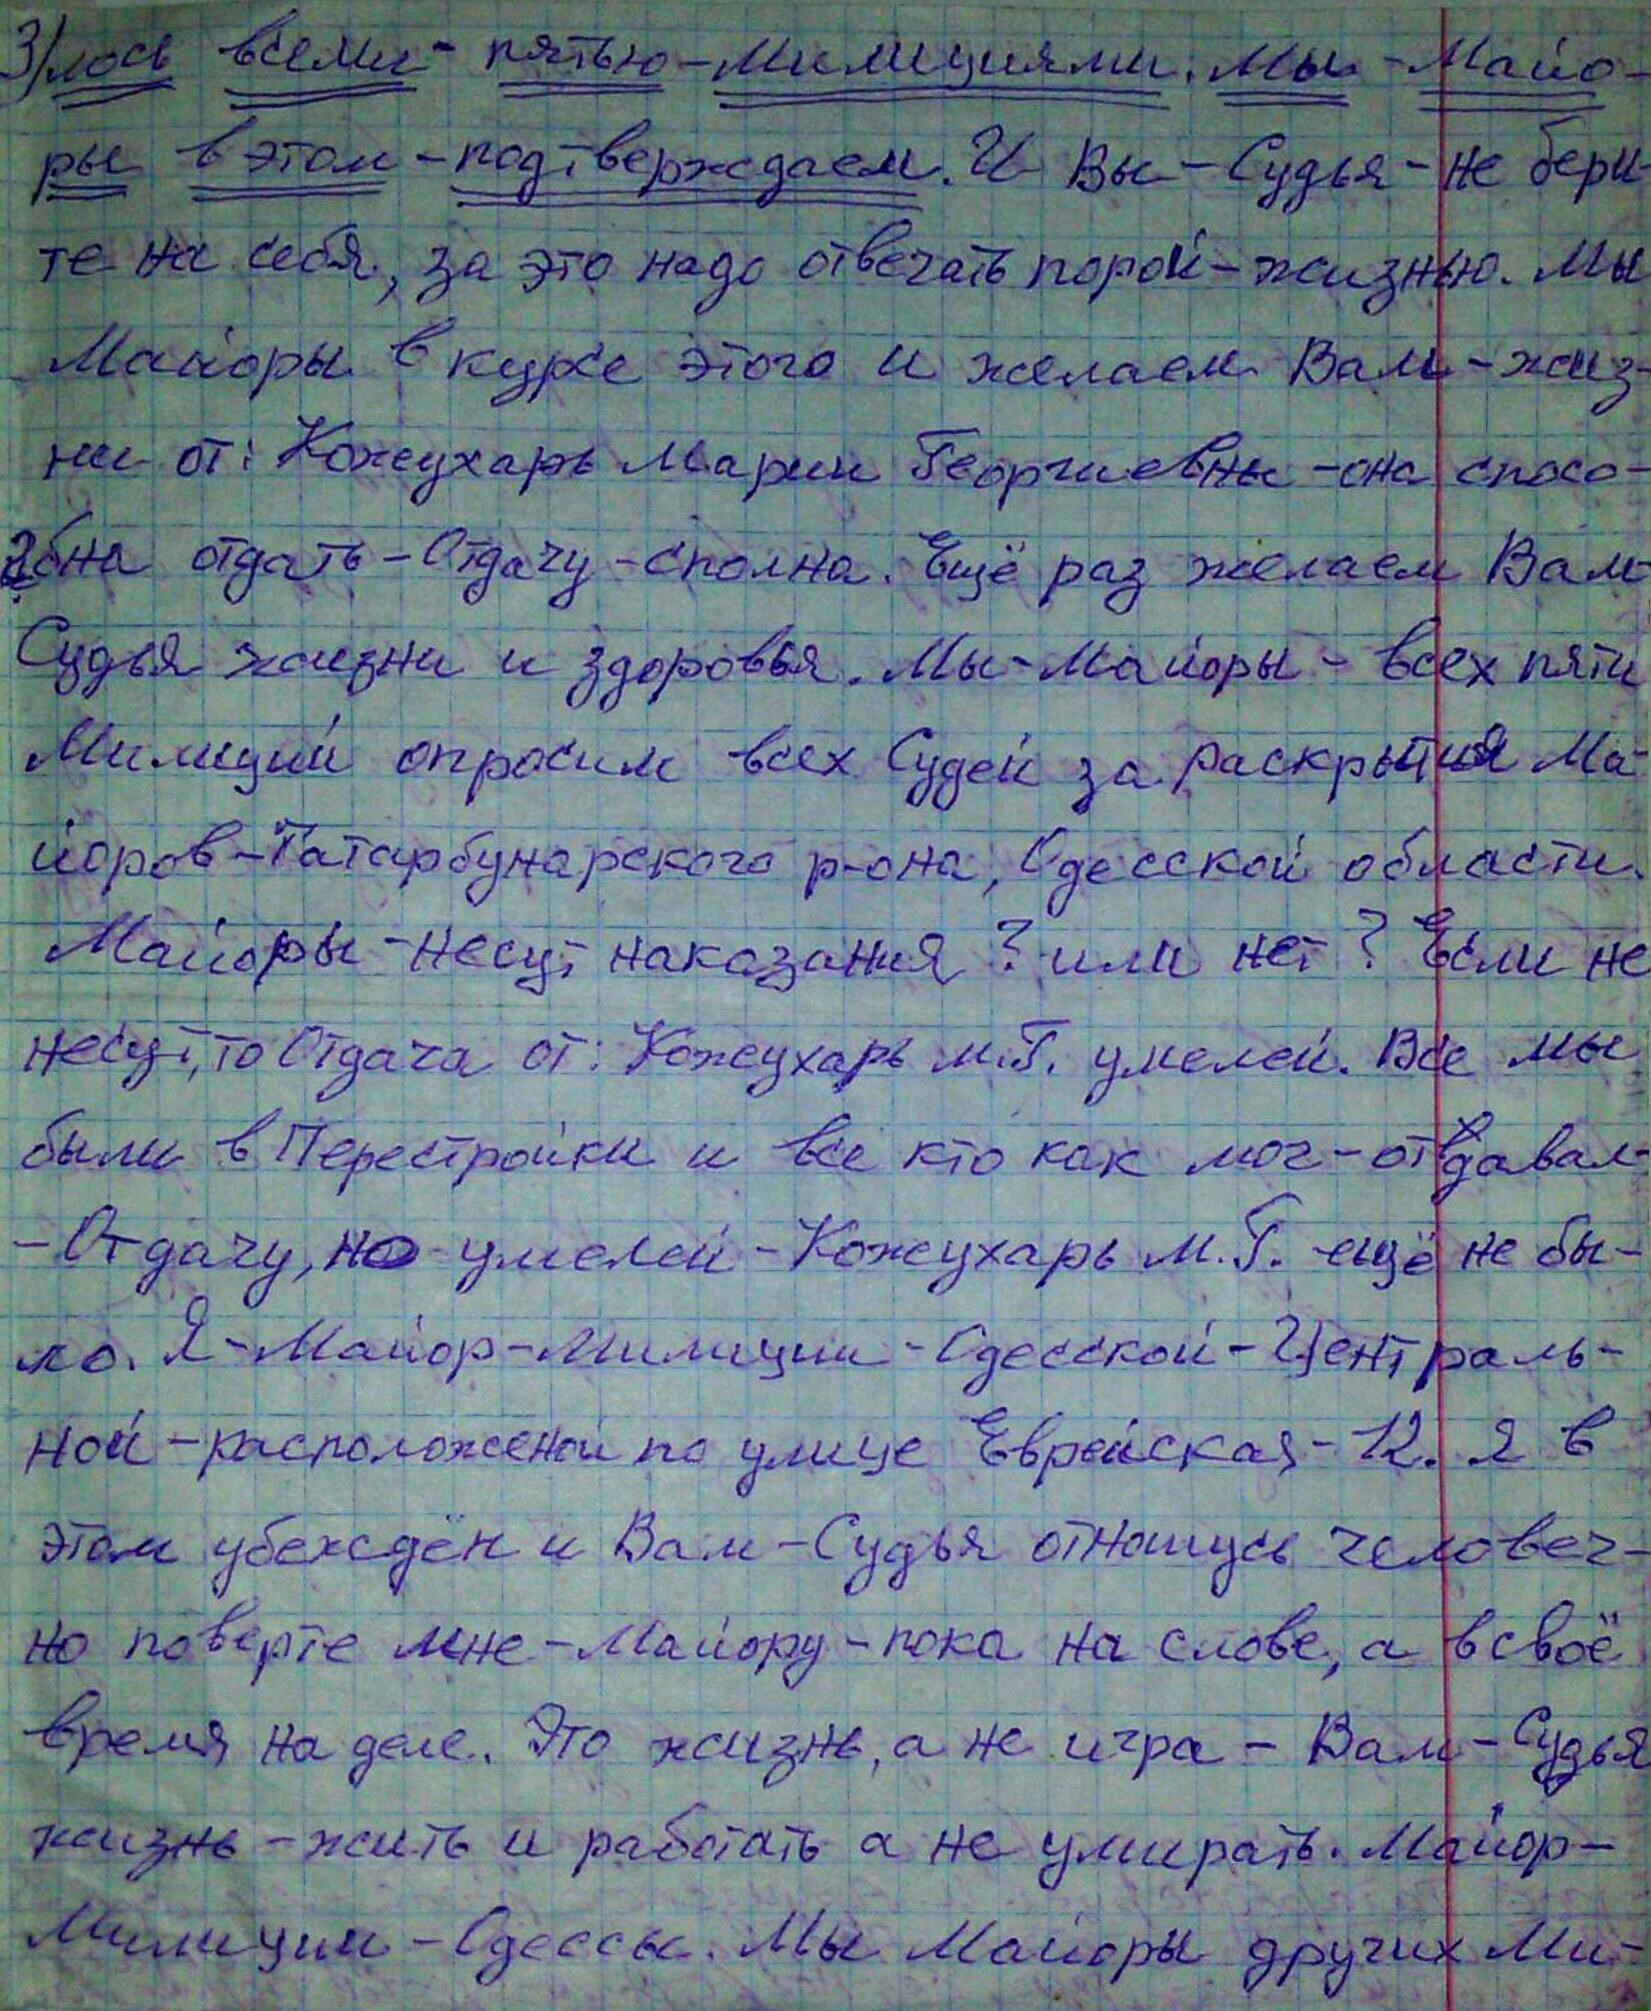 3/лось всеми - пятью - Милициями. Мы - Майо-
ры в этом - подтверждаем. И Вы - Судья - не бери
те на себя, за это надо отвечать порой - жизнью. Мы
Майоры в курсе этого и желаем Вам - жиз-
ни от: Кожухарь Марии Георгиевны - она спосо-
бна отдать - Отдачу - сполна. Ещё раз желаем Вам
Судья жизни и здоровья. Мы - Майоры - всех пяти
Милиций опросим всех Судей за раскрытия Ма-
йоров - Татарбунарского р-она, Одесской области.
Майоры - несут наказания? или нет? Если не
несут, то Отдача от: Кожухарь М.Г. умелей. Все мы
были в Перестройки и все кто как мог - отдавал-
- Отдачу, но умелей - Кожухарь М.Г. ещё не бы-
ло. Я - Майор - Милиции - Одесской - Централь-
ной - расположеной по улице Еврейская - 12. Я в
этом убеждён и Вам - Судья отношусь человеч-
но поверте мне - Майору - пока на слове, а в своё
время на деле. Это жизнь, а не игра - Вам - Судья
жизнь - жить и работать а не умирать. Майор -
Милиции - Одессы. Мы Майоры других Ми-